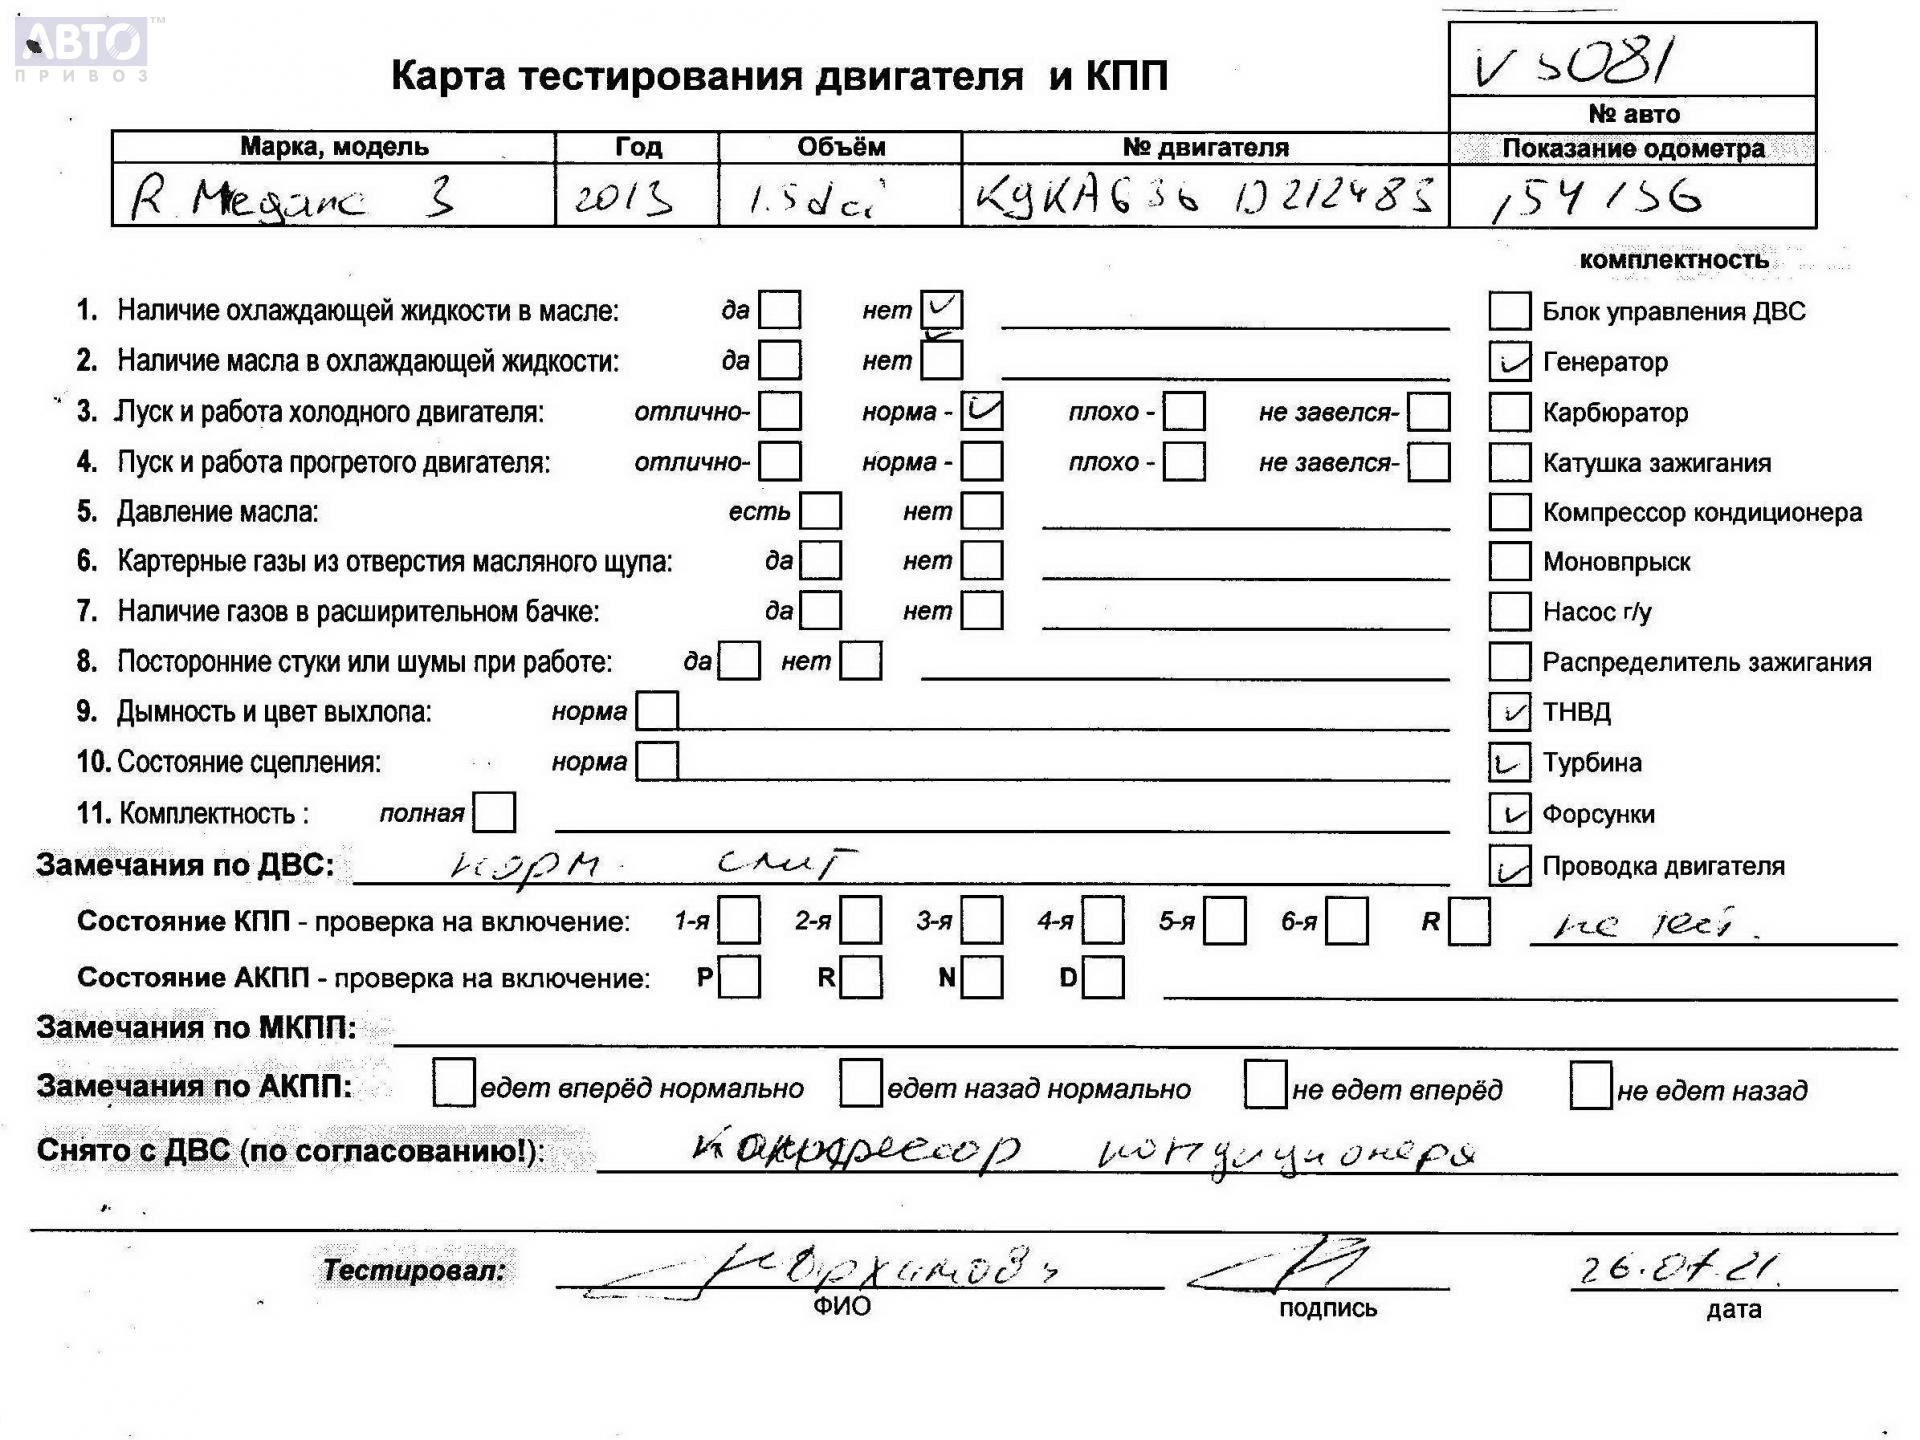 АВТО™
ПРИВОЗ
Карта тестирования двигателя и КПП
V 5081
№ авто
Марка, модель Год Объём № двигателя Показание одометра
R. Меgане 3 2013 1.5dci K9KA636 D212483 154 156
комплектность
1. Наличие охлаждающей жидкости в масле: да нет Блок управления ДВС
2. Наличие масла в охлаждающей жидкости: да нет Генератор
3. Пуск и работа холодного двигателя: отлично- норма - плохо - не завелся- Карбюратор
4. Пуск и работа прогретого двигателя: отлично- норма - плохо - не завелся- Катушка зажигания
5. Давление масла: есть нет Компрессор кондиционера
6. Картерные газы из отверстия масляного щупа: да нет Моновпрыск
7. Наличие газов в расширительном бачке: да нет Насос г/у
8. Посторонние стуки или шумы при работе: да нет Распределитель зажигания
9. Дымность и цвет выхлопа: норма ТНВД
10. Состояние сцепления: норма Турбина
11. Комплектность : полная Форсунки
Замечания по ДВС: норм. Проводка двигателя
Состояние КПП - проверка на включение: 1-я 2-я 3-я 4-я 5-я 6-я R не тест.
Состояние АКПП - проверка на включение: P R N D
Замечания по МКПП:
Замечания по АКПП: едет вперёд нормально едет назад нормально не едет вперёд не едет назад
Снято с ДВС (по согласованию!): компрессор кондиционера
Тестировал: 26.07.21.
ФИО подпись дата